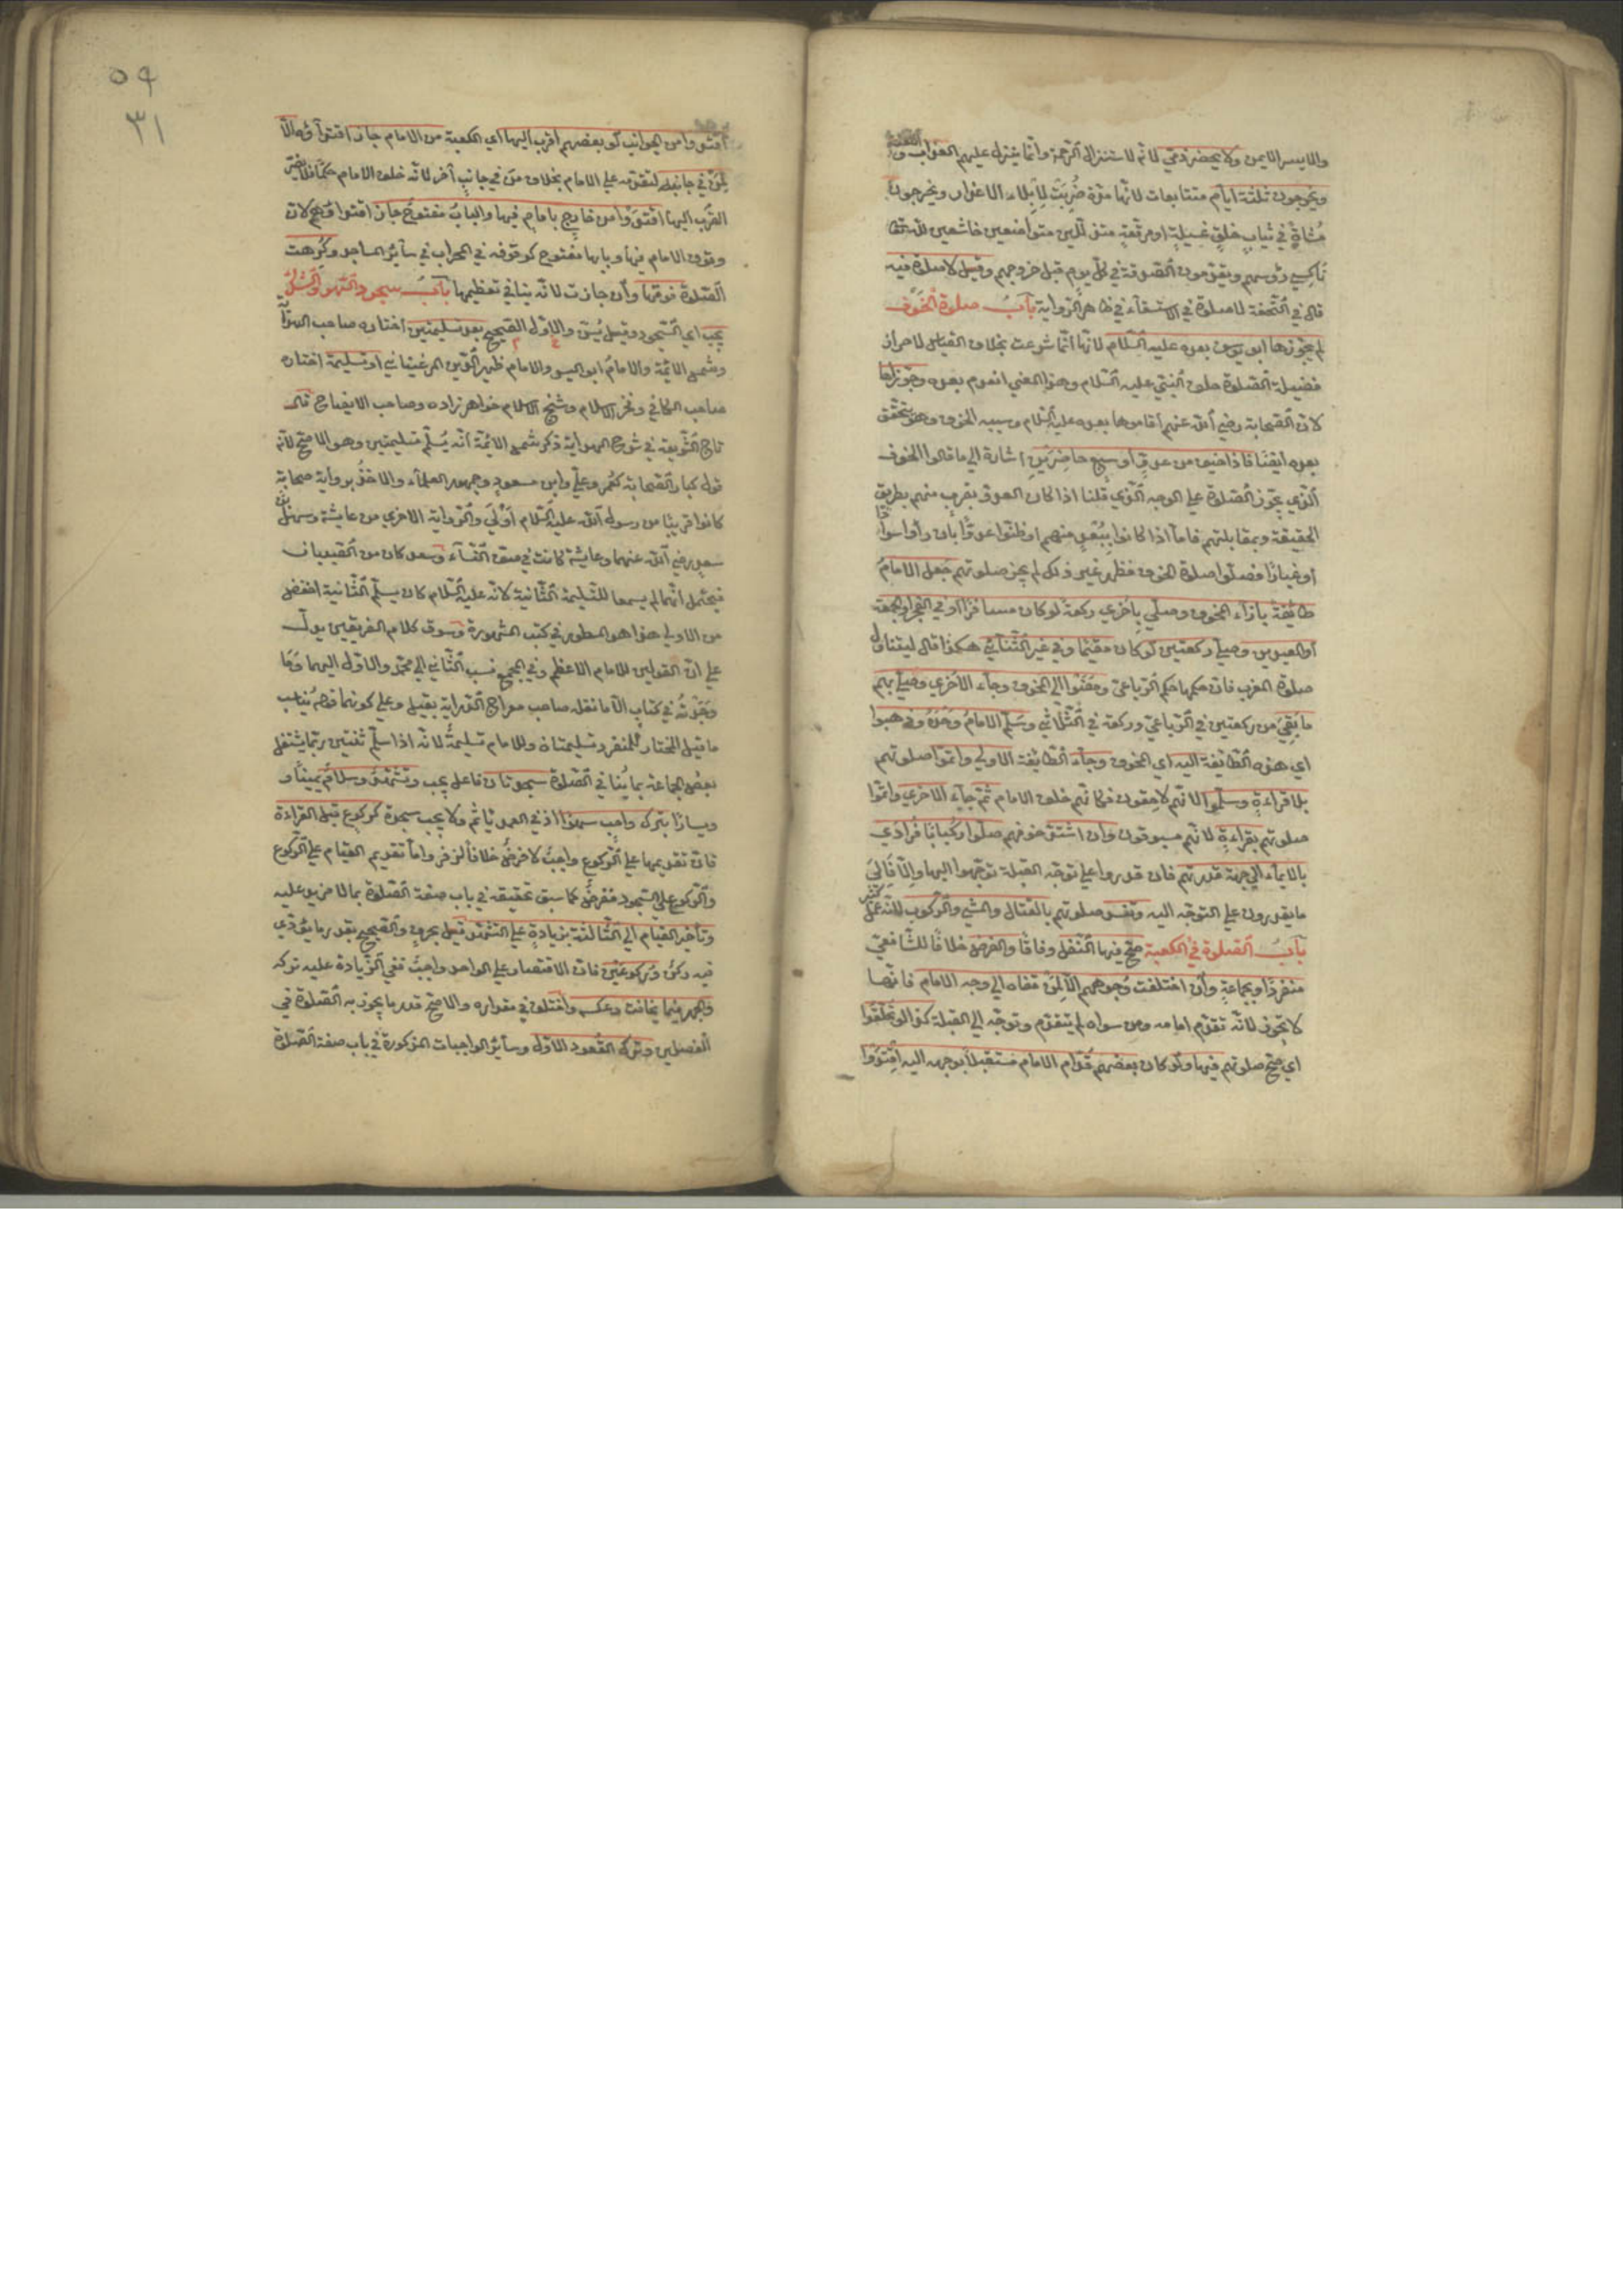 والايسر الايمن ولا يحضر ذمي لانه لاستنزال الرحمة وانما ينزل عليهم العذاب واللعنة
ويخرجون ثلثة ايام متتابعات لانها مدة ضربت لابلاء الاعذار ويخرجون
مشاة في ثياب خلق غسيلة او مرقعة متذللين متواضعين خاشعين لله تعالى
ناكسي رؤسهم ويقدمون الصدقة في كل يوم قبل خروجهم وقيل لا صلوة فيه
قال في التحفة لا صلوة في الاستسقاء في ظاهر الرواية باب صلوة الخوف
لم يجوزها ابو يوسف بعده عليه السلام لانها انما شرعت بخلاف القياس لاحراز
فضيلة الصلوة خلف النبي عليه السلام وهذا المعنى انعدم بعده وجوزاها
لان الصحابة رضي الله عنهم اقاموها بعده عليه السلام وسببه الخوف وهو يتحقق
بعده ايضا فاذا خيف من عدو او سبع حاضرين اشارة الى ما قالوا الخوف
الذي يجوز الصلوة على الوجه الذي قلنا اذا كان العدو بقرب منهم بطريق
الحقيقة وبمقابلتهم فاما اذا كانوا ببعد منهم او ظنوا عدوا بان رأوا سوادا
او غبارا فصلوا صلوة الخوف فظهر غير ذلك لم يجز صلوتهم جعل الامام
طائفة بازاء الخوف وصلى باخرى ركعة لو كان مسافرا او في الفجر او الجمعة
او العيدين وصلى ركعتين لو كان مقيما وفي غير الثنائي هكذا قال ليتناول
صلوة المغرب فان حكمها حكم الرباعي ومضوا الى الخوف وجاء الاخرى وصلى بهم
ما بقي من ركعتين في الرباعي وركعة في الثلاثي وسلم الامام وحده وذهبوا
اي هذه الطائفة اليه اي الخوف وجاء الطائفة الاولى واتموا صلوتهم
بلا قراءة وسلموا لانهم لاحقون فكانهم خلف الامام ثم جاء الاخرى واتموا
صلوتهم بقراءة لانهم مسبوقون وان اشتد خوفهم صلوا ركبانا فرادى
بالايماء الى جهة قدرتهم فان قدروا على توجه القبلة توجهوا اليها والا فالى
ما يقدرون على التوجه اليه وتفسد صلوتهم بالقتال والمشي والركوب لانه عمل كثير
باب الصلوة في الكعبة صح فيها النفل وفاقا والفرض خلافا للشافعي
منفردا وبجماعة وان اختلفت وجوههم الا لمن قفاه الى وجه الامام فانها
لا يجوز لانه تقدم امامه ومن سواه لم يتقدم وتوجه الى القبلة كذا لو تحلقوا
اي صح صلوتهم فيها ولو كان بعضهم قدام الامام مستقبلا بوجهه اليه اقتدوا
٥٩
٣١
اقتدوا من الجوانب لو بعضهم اقرب اليها اي الكعبة من الامام جاز اقتداؤه الا
لمن في جانبه لتقدمه على الامام بخلاف من في جانب آخر لانه خلف الامام حكما فلا يضر
القرب اليها اقتدوا من خارج بامام فيها والباب مفتوح جاز اقتداؤهم لان
وقوف الامام فيها وبابها مفتوح كوقوفه في المحراب في سائر المساجد وكرهت
الصلوة فوقها وان جازت لانه ينافي تعظيمها باب سجود السهو والشك
يجب اي السجود وقيل يسن والاول الصحيح بعد تسليمتين اختاره صاحب الهداية
وشمس الائمة والامام ابو اليسر والامام ظهير الدين المرغيناني او تسليمة اختاره
صاحب الكافي وفخر الاسلام وشيخ الاسلام خواهر زاده وصاحب الايضاح قال
تاج الشريعة في شرح الهداية ذكر شمس الائمة انه يسلم تسليمتين وهو الاصح لانه
قول كبار الصحابة كعمر وعلي وابن مسعود وجمهور العلماء والاخذ برواية صحابة
كانوا قريبا من رسول الله عليه السلام اولى والرواية الاخرى من عايشة وسهل بن
سعد رضي الله عنهما وعايشة كانت في صف النساء وسعد كان من الصبيان
فيحتمل انهما لم يسمعا التسليمة الثانية لانه عليه السلام كان يسلم الثانية اخفض
من الاولى هذا هو المسطور في كتب المشهورة وسوق كلام الفريقين يدل
على ان القولين للامام الاعظم وفي المجمع نسب الثاني الى محمد والاول اليهما وما
وجدته في كتاب الا ما نقله صاحب معراج الدراية بقيل وعلى كونهما قوله يناسب
ما قيل المختار للمنفرد تسليمتان وللامام تسليمة لانه اذا سلم ثنتين ربما يشتغل
بعض الجماعة بما ينافي الصلوة سجدتان فاعل يجب وتشهد وسلام يمينا و
ويسارا بترك واجب سهوا اذ في العمد ياثم ولا يجب سجدة كركوع قبل القراءة
فان تقديمها على الركوع واجب لا فرض خلافا لزفر واما تقديم القيام على الركوع
والركوع على السجود ففرض كما سبق تحقيقه في باب صفة الصلوة بما لا مزيد عليه
وتأخير القيام الى الثالثة بزيادة على التشهد قيل بحرف والصحيح بقدر ما يؤدي
فيه ركن وركوعين فان الاقتصار على الواحد واجب ففي الزيادة عليه تركه
والجهر فيما يخافت وعكسه واختلف في مقداره والاصح قدر ما يجوز به الصلوة في
الفصلين وترك القعود الاول وسائر الواجبات المذكورة في باب صفة الصلوة